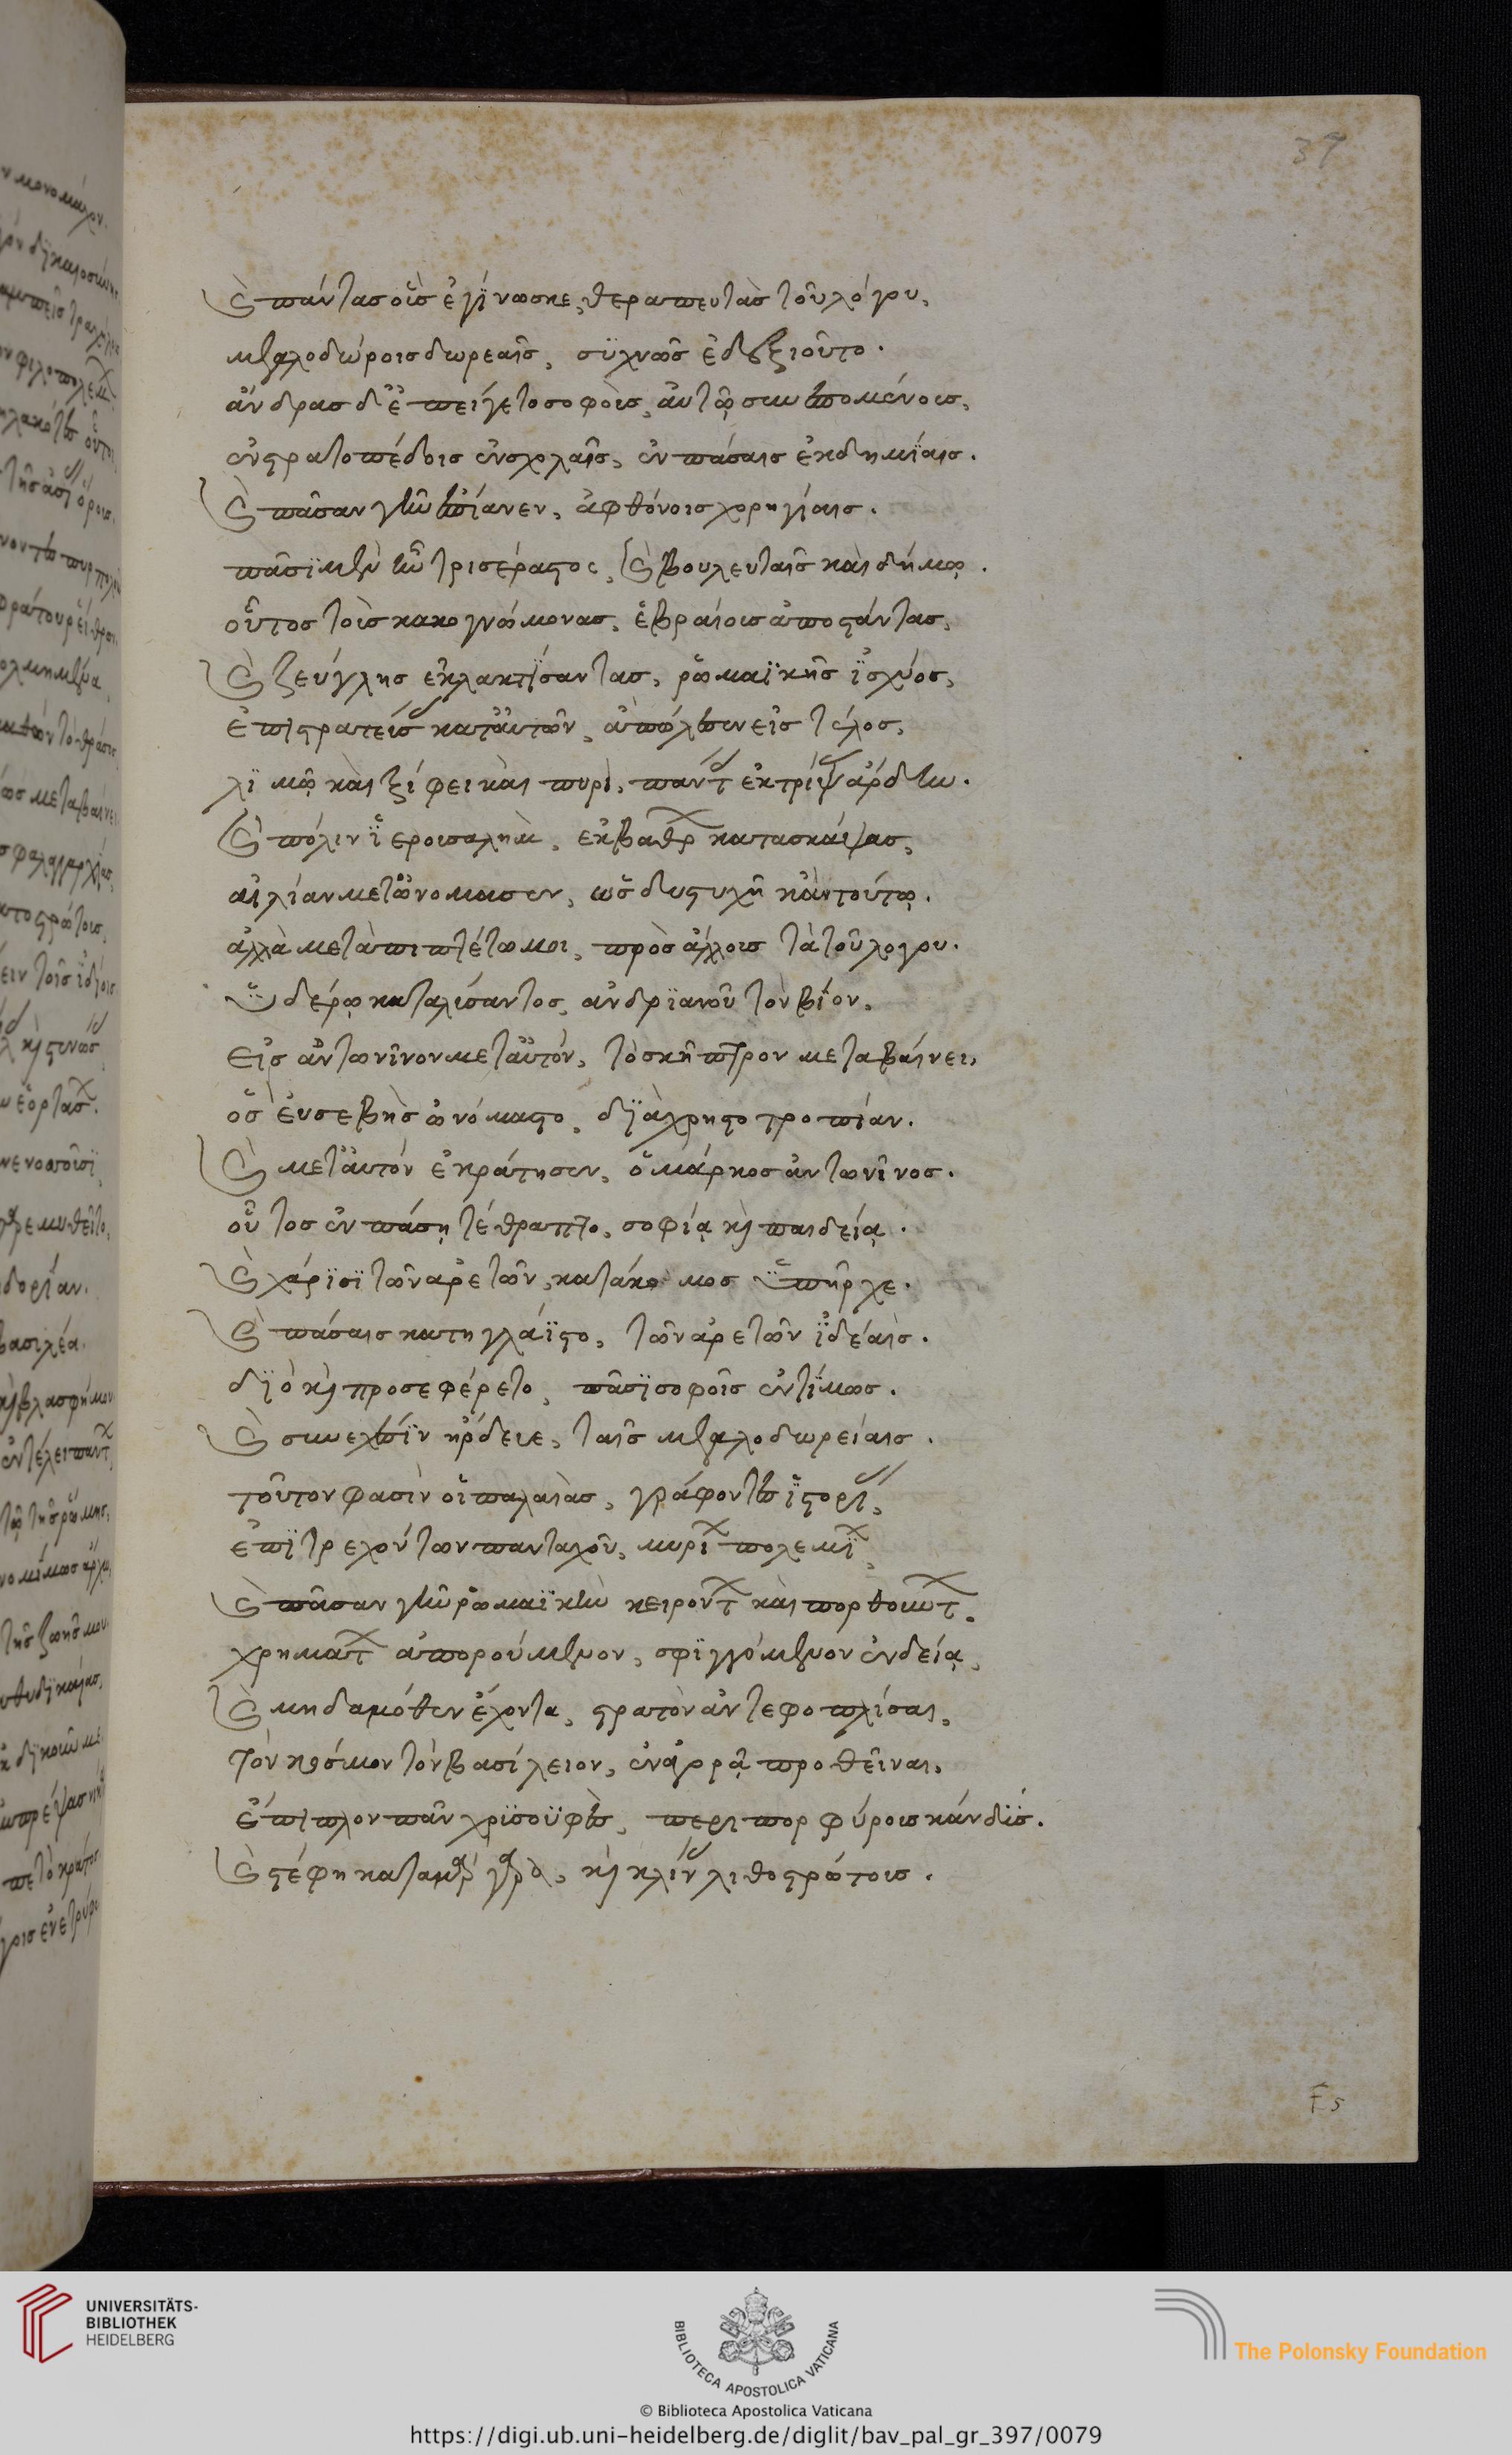 37
καὶ πάντας οὓς ἐγίνωσκε, θεραπευτὰς τοῦ λόγου,
μεγαλοδώροις δωρεαῖς, συχνῶς ἐδεξιοῦτο.
ἄνδρας δ' ἐπείγετο σοφοὺς, αὐτῷ συνεπομένους,
ἐν στρατοπέδοις ἐν σχολαῖς, ἐν πάσαις ἐκδημίαις.
καὶ πᾶσαν γῆν ἐπίανεν, ἀφθόνοις χορηγίαις.
πᾶσι μὲν ἦν τρισέραστος, καὶ βουλευταῖς καὶ δήμῳ.
οὗτος τοὺς κακογνώμονας, ἑβραίους ἀποστάντας,
καὶ ζεύγλης ἐκλακτίσαντας, ῥωμαϊκῆς ἰσχύος,
ἐπιστρατεύσας κατ' αὐτῶν, ἀπώλεσεν εἰς τέλος,
λιμῷ καὶ ξίφει καὶ πυρὶ, πάντας ἐκτρίψας ἄρδην.
καὶ πόλιν ἱερουσαλὴμ, ἐκ βάθρων κατασκάψας,
αἰλίαν μετωνόμασεν, ὡς δυστυχῆ κἀν τούτῳ.
ἀλλὰ μεταπιπτέτω μοι, πρὸς ἄλλους τὰ τοῦ λόγου.
ὑδέρῳ καταλύσαντος, ἀνδριανοῦ τὸν βίον,
εἰς ἀντωνῖνον μετ' αὐτόν, τὸ σκῆπτρον μεταβαίνει,
ὃς εὐσεβὴς ὠνόμαστο, διὰ χρηστοτροπίαν.
καὶ μετ' αὐτόν ἐκράτησεν, ὁ μάρκος ἀντωνῖνος.
οὗτος ἐν πάσῃ τέθραπτο, σοφίᾳ καὶ παιδείᾳ.
καὶ χάρισι τῶν ἀρετῶν, κατάκομος ὑπῆρχε.
καὶ πάσαις κατηγλάϊστο, τῶν ἀρετῶν ἰδέαις.
διὸ καὶ προσεφέρετο, πᾶσι σοφοῖς ἐντίμως.
καὶ συνεχέσιν ἤρδευε, ταῖς μεγαλοδωρείαις.
τοῦτον φασὶν οἱ παλαιὰς, γράφοντες ἱστορίας,
ἐπιτρεχόντων πανταχοῦ, μυρίων πολεμίων,
καὶ πᾶσαν γῆν ῥωμαϊκὴν κειρόντων καὶ πορθούντων.
χρημάτων ἀπορούμενον, σφιγγόμενον ἐνδείᾳ,
καὶ μηδαμόθεν ἔχοντα, στρατὸν ἀντεφοπλίσαι,
τὸν κόσμον τὸν βασίλειον, ἐν ἀγορᾷ προθεῖναι.
ἔπιπλον πᾶν χρυσοϋφὲς, περιπορφύρους κάνδυς.
καὶ στέφη καταμάργαρα, καὶ κλίνας λιθοστρώτους.
F5
UNIVERSITÄTS-
BIBLIOTHEK
HEIDELBERG
BIBLIOTECA APOSTOLICA VATICANA
© Biblioteca Apostolica Vaticana
The Polonsky Foundation
https://digi.ub.uni-heidelberg.de/diglit/bav_pal_gr_397/0079